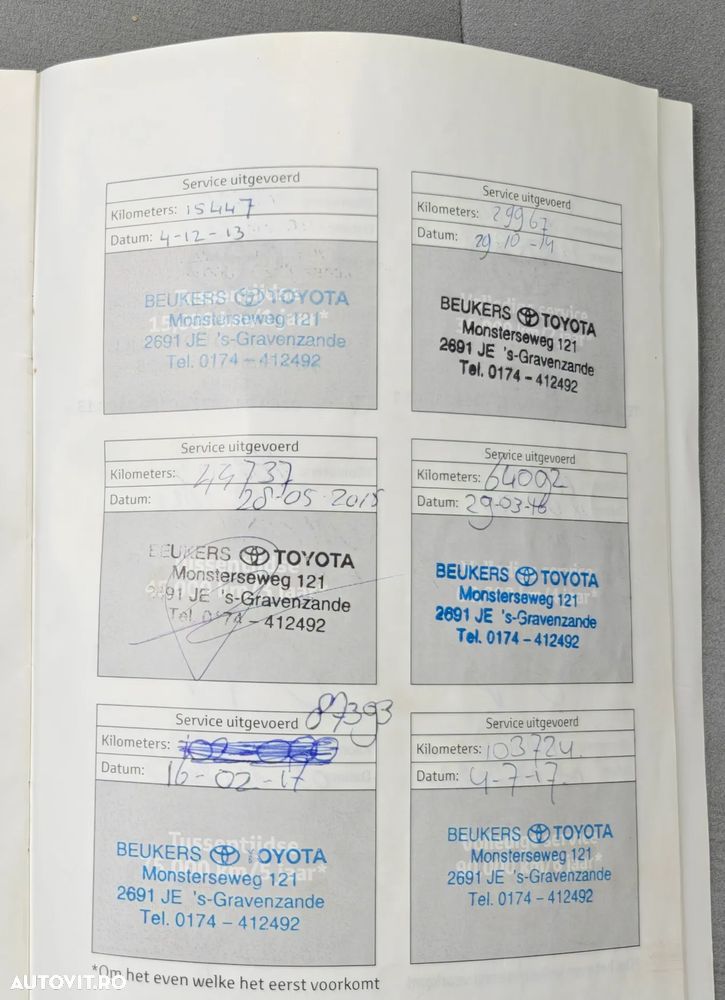 Service uitgevoerd
Kilometers: 15447
Datum: 4-12-13
BEUKERS TOYOTA
Monsterseweg 121
2691 JE 's-Gravenzande
Tel. 0174 - 412492
Service uitgevoerd
Kilometers: 29967
Datum: 29-10-14
BEUKERS TOYOTA
Monsterseweg 121
2691 JE 's-Gravenzande
Tel. 0174 - 412492
Service uitgevoerd
Kilometers: 44737
Datum: 28-05-2015
BEUKERS TOYOTA
Monsterseweg 121
2691 JE 's-Gravenzande
Tel. 0174 - 412492
Service uitgevoerd
Kilometers: 64092
Datum: 29-03-16
BEUKERS TOYOTA
Monsterseweg 121
2691 JE 's-Gravenzande
Tel. 0174 - 412492
Service uitgevoerd 87393
Kilometers:
Datum: 16-02-17
Tussentijdse
BEUKERS TOYOTA
Monsterseweg 121
2691 JE 's-Gravenzande
Tel. 0174 - 412492
Service uitgevoerd
Kilometers: 103724
Datum: 4-7-17
BEUKERS TOYOTA
Monsterseweg 121
2691 JE 's-Gravenzande
Tel. 0174 - 412492
*Om het even welke het eerst voorkomt
AUTOVIT.RO